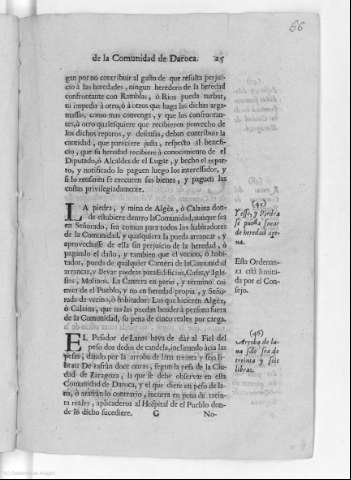 66
de la Comunidad de Daroca. 25
gan por no contribuir al gasto de que resulta perjui-
cio à las heredades, ningun heredero de la heredad
confrontante con Ramblas, ò Rios pueda turbar,
ni impedir à otro, ò à otros que haga las dichas arga-
massas, como mas convenga, y que los confrontan-
tes, à otro qualesquiere que recibieren provecho de
los dichos reparos, y defensas, deban contribuir la
cantidad, que pareciere justa, respecto al benefi-
cio, que su heredad recibiere à conocimiento de el
Diputado, ò Alcaldes de el Lugar, y hecho el repar-
to, y notificado lo paguen luego los interessados, y
si lo resistiran se executen sus bienes, y paguen las
costas privilegiadamente.
LA piedra, y mina de Algèz, ò Calaina don-
de estubiere dentro la Comunidad, aunque sea
en Señorada, sea comun para todos los habitadores
de la Comunidad, y qualquiera la pueda arrancar, y
aprovecharse de ella sin perjuicio de la heredad, ò
pagando el daño, y tambien que el vecino, ò habi-
tador, pueda de qualquier Cantera de la Comunidad
arrancar, y llevar piedras para Edificios, Casas, y Igle-
sias, Molinos. La Cantera en parte, y termino co-
mun de el Pueblo, y no en heredad propia, y Seño-
rada de vecino, ò habitador: Los que hicieren Algèz,
ò Calaina, que no las puedan vender à persona fuera
de la Comunidad, sò pena de cinco reales por carga.
EL Pesador de Lanas haya de dàr al Fiel del
peso dos dedos de candela, inclinando àcia las
pesas, dando por la arroba de lana treinta y seis li-
bras: De azafràn doce onzas, segun la pesa de la Ciu-
dad de Zaragoza, la que se debe observar en esta
Comunidad de Daroca, y el que diere en peso de la-
na, ò azafràn lo contrario, incurra en pena de trein-
ta reales, aplicaderos al Hospital de el Pueblo don-
de lo dicho sucediere. G No-
Yesso, y Piedra
se pueda sacar
de heredad age-
na.
Esta Ordenan-
za està limita-
da por el Con-
sejo.
(46)
Arroba de la-
na sea de
treinta y seis
libras.